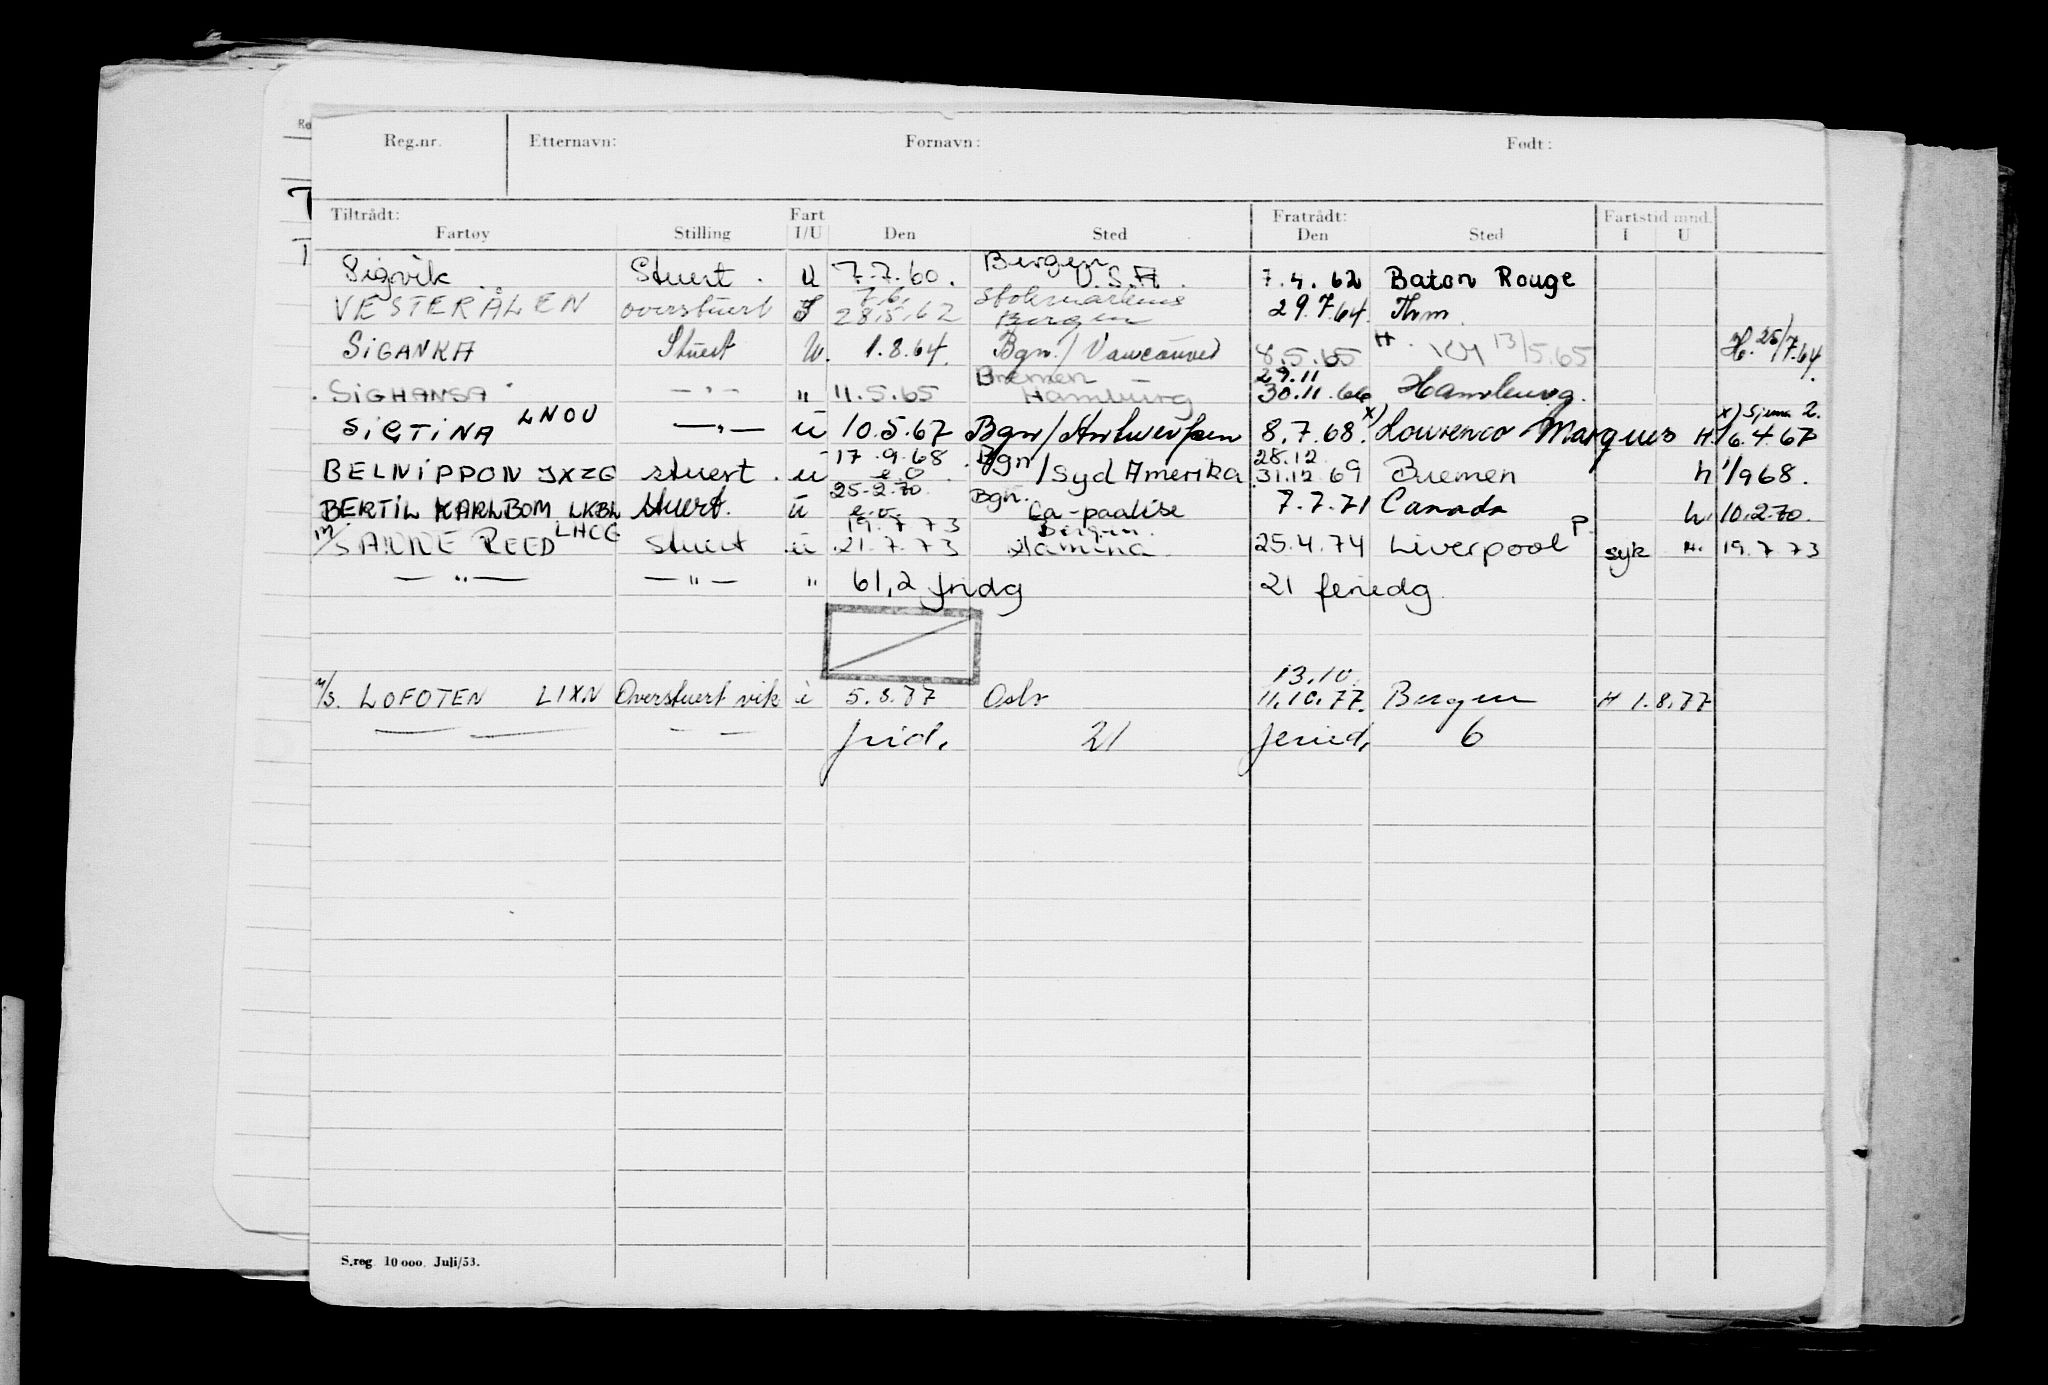 Reg.nr. Etternavn: Fornavn: Født:
Tiltrådt: Fart Fratrådt: Fartstid mnd.
Fartøy Stilling I/U Den Sted Den Sted I U
Sigvik Stuert. U 7.7.60. Bergen U.S.A. 7.4.62 Baton Rouge
VESTERÅLEN overstuert I 7.6. 28.5.62 Stokmarknes Bergen 29.7.64. Thm.
SIGANKA Stuert U. 1.8.64. Bgn./Vancouver 8.5.65 H. 13/5.65 H. 25/7.64.
SIGHANSA —"— " 11.5.65 Bremen Hamburg 29.11 30.11.66 Hamburg.
SIGTINA LNOU —"— u 10.5.67 Bgn/Antwerpen 8.7.68. x) Lourenco Marques H. 16.4.67 x) Sjema 2.
BELNIPPON JXZG stuert. u 17.9.68 e.o. Bgn/Syd Amerika 28.12 31.12.69 Bremen h 1/968.
BERTIL KARLBOM LKBL stuert. u 25.2.70. e.o. Bgn. Ca-paalise 7.7.71 Canada h. 10.2.70.
m/s ANNE REED LHCG stuert u 19.7.73 21.7.73 Bergen. Hamina. 25.4.74 Liverpool P syk H. 19.7.73
—"— —"— " 61,2 fridg 21 feriedg.
13.10.
M/S. LOFOTEN LIXN Overstuert vik i 5.8.77 Oslo 11.10.77. Bergen H 1.8.77
— — — — frid. 21 feried. 6
S.reg. 10 000. Juli/53.